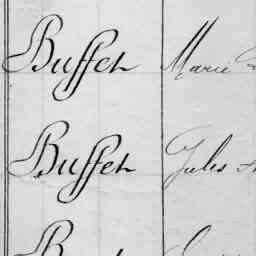 Buffet Marie
Buffet Jules